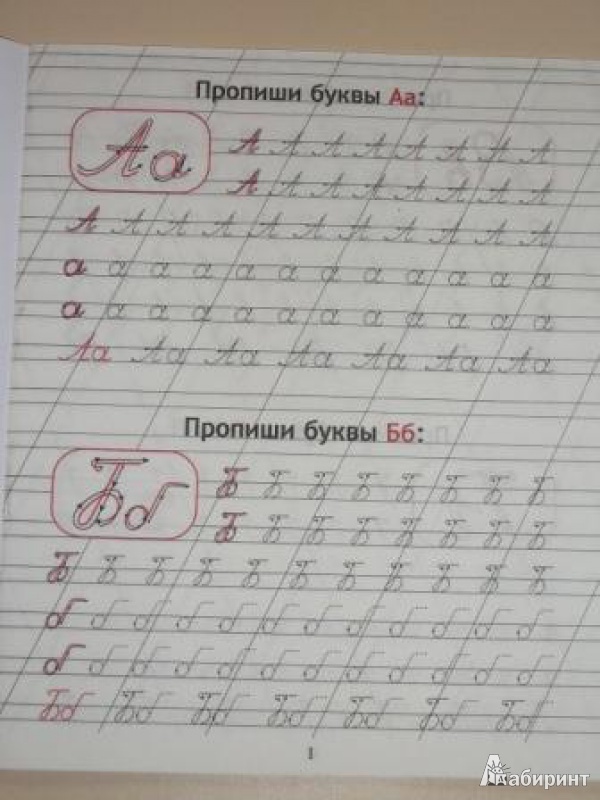 Пропиши буквы Аа:
Аа А А А А А А А А
А А А А А А А А
А А А А А А А А А А А
а а а а а а а а а а а а
а а а а а а а а а а а а
Аа Аа Аа Аа Аа Аа Аа
Пропиши буквы Бб:
Бб Б Б Б Б Б Б Б Б
Б Б Б Б Б Б Б Б
Б Б Б Б Б Б Б Б Б Б Б
б б б б б б б б б б б б
б б б б б б б б б б б б
Бб Бб Бб Бб Бб Бб Бб
1
Лабиринт